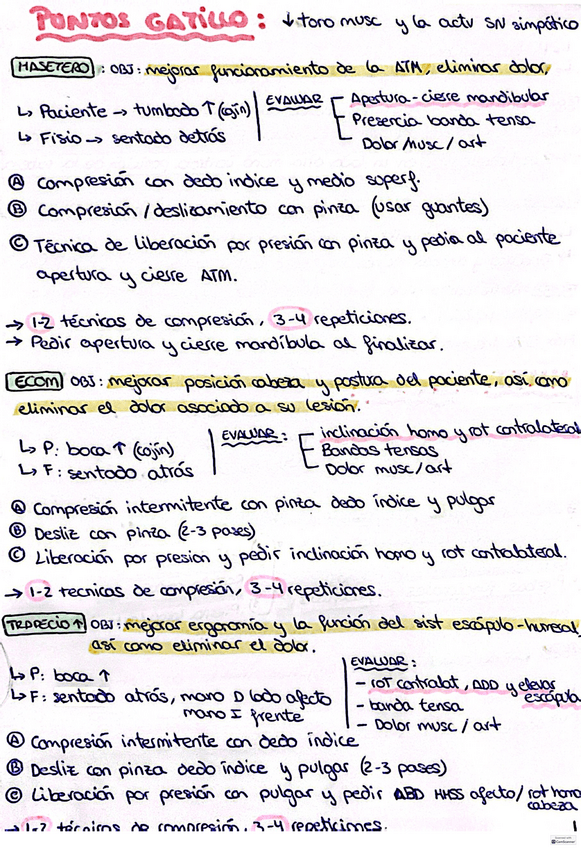 PUNTOS GATILLO: ↓ tono musc y la actv SN simpático
MASETERO: OBJ: mejorar funcionamiento de la ATM, eliminar dolor,
↳ Paciente → tumbado ↑ (cojín)
↳ Fisio → sentado detrás
EVALUAR
Apertura-cierre mandibular
Presencia banda tensa
Dolor Musc / art
Ⓐ Compresión con dedo indice y medio superf.
Ⓑ Compresión / deslizamiento con pinza (usar guantes)
Ⓒ Técnica de liberación por presión con pinza y pedia al paciente
apertura y cierre ATM.
→ 1-2 técnicas de compresión, 3-4 repeticiones.
→ Pedir apertura y cierre mandíbula al finalizar.
ECOM OBJ: mejorar posición cabeza y postura del paciente, así como
eliminar el dolor asociado a su lesión.
↳ P: boca ↑ (cojín)
↳ F: sentado atrás
EVALUAR:
inclinación homo y rot contralateral
Bandas tensas
Dolor musc / art
Ⓐ Compresión intermitente con pinza dedo índice y pulgar
Ⓑ Desliz con pinza (2-3 pases)
Ⓒ Liberación por presion y pedir inclinación homo y rot contralateral.
→ 1-2 tecnicas de compresión, 3-4 repeticiones.
TRAPECIO ↑ OBJ: mejorar ergonomía y la función del sist escápulo-humeral,
así como eliminar el dolor.
↳ P: boca ↑
↳ F: sentado atrás, mano D lado afecto
mano I frente
EVALUAR:
- rot contralat, ADD y elevar
escápula
- banda tensa
- Dolor musc / art
Ⓐ Compresión intermitente con dedo índice
Ⓑ Desliz con pinza dedo índice y pulgar (2-3 pases)
Ⓒ Liberación por presión con pulgar y pedir ABD MMSS afecto / rot homo
cabeza
→ 1-2 técnicas de compresión, 3-4 repeticiones.
1
CamScanner